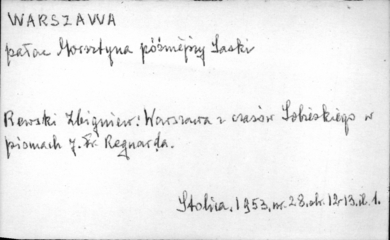 WARSZAWA
pałac Morsztyna późniejszy Saski
Rewski Zbigniew: Warszawa z czasów Sobieskiego w
pismach J. Fr. Regnarda.
Stolica, 1953, nr. 28, str. 12-13, il. 1.